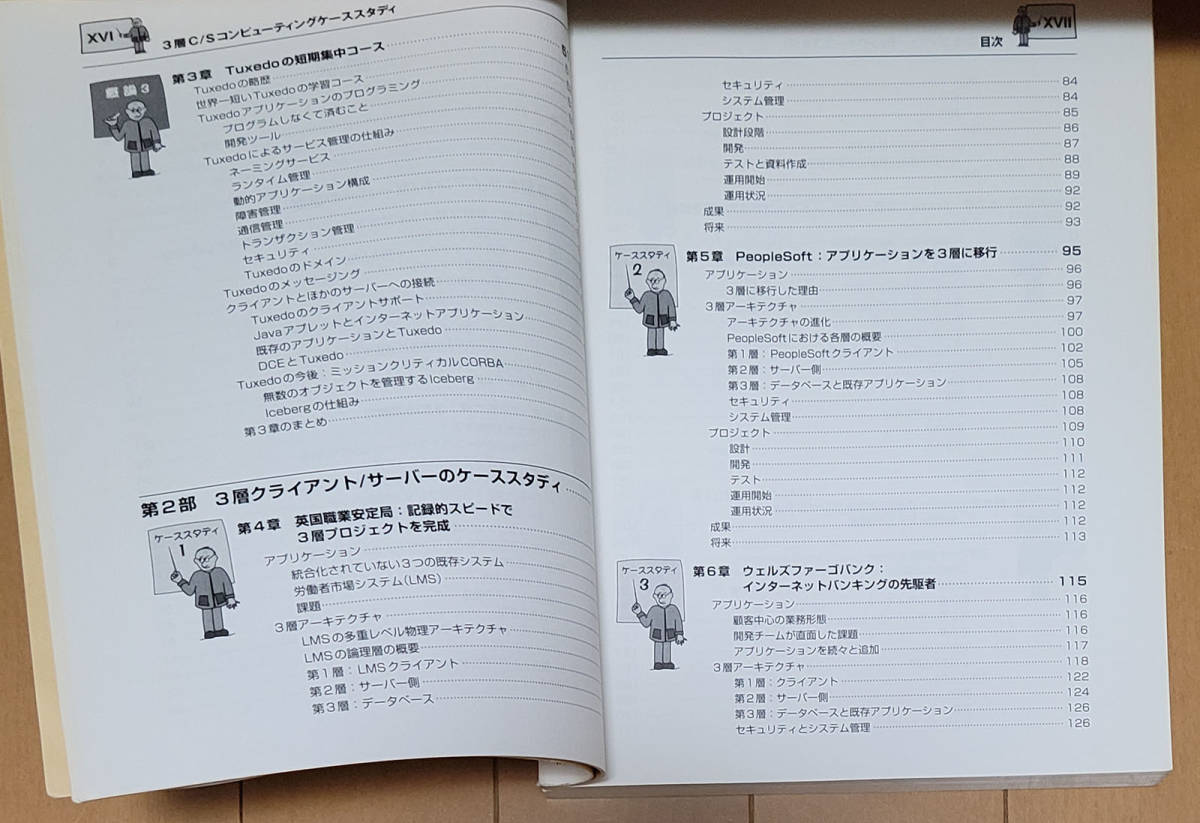 XVI
3層C/Sコンピューティングケーススタディ
概論3
第3章 Tuxedoの短期集中コース
Tuxedoの略歴
世界一短いTuxedoの学習コース
Tuxedoアプリケーションのプログラミング
プログラムしなくて済むこと
開発ツール
Tuxedoによるサービス管理の仕組み
ネーミングサービス
ランタイム管理
動的アプリケーション構成
障害管理
通信管理
トランザクション管理
セキュリティ
Tuxedoのドメイン
Tuxedoのメッセージング
クライアントとほかのサーバーへの接続
Tuxedoのクライアントサポート
Javaアプレットとインターネットアプリケーション
既存のアプリケーションとTuxedo
DCEとTuxedo
Tuxedoの今後：ミッションクリティカルCORBA
無数のオブジェクトを管理するIceberg
Icebergの仕組み
第3章のまとめ
第2部 3層クライアント/サーバーのケーススタディ
ケーススタディ
1
第4章 英国職業安定局：記録的スピードで
3層プロジェクトを完成
アプリケーション
統合化されていない3つの既存システム
労働者市場システム(LMS)
課題
3層アーキテクチャ
LMSの多重レベル物理アーキテクチャ
LMSの論理層の概要
第1層：LMSクライアント
第2層：サーバー側
第3層：データベース
XVII
目次
セキュリティ 84
システム管理 84
プロジェクト 85
設計段階 86
開発 87
テストと資料作成 88
運用開始 89
運用状況 92
成果 92
将来 93
ケーススタディ
2
第5章 PeopleSoft：アプリケーションを3層に移行 95
アプリケーション 96
3層に移行した理由 96
3層アーキテクチャ 97
アーキテクチャの進化 97
PeopleSoftにおける各層の概要 100
第1層：PeopleSoftクライアント 102
第2層：サーバー側 105
第3層：データベースと既存アプリケーション 108
セキュリティ 108
システム管理 108
プロジェクト 109
設計 110
開発 111
テスト 112
運用開始 112
運用状況 112
成果 112
将来 113
ケーススタディ
3
第6章 ウェルズファーゴバンク：
インターネットバンキングの先駆者 115
アプリケーション 116
顧客中心の業務形態 116
開発チームが直面した課題 116
アプリケーションを続々と追加 117
3層アーキテクチャ 118
第1層：クライアント 122
第2層：サーバー側 124
第3層：データベースと既存アプリケーション 126
セキュリティとシステム管理 126